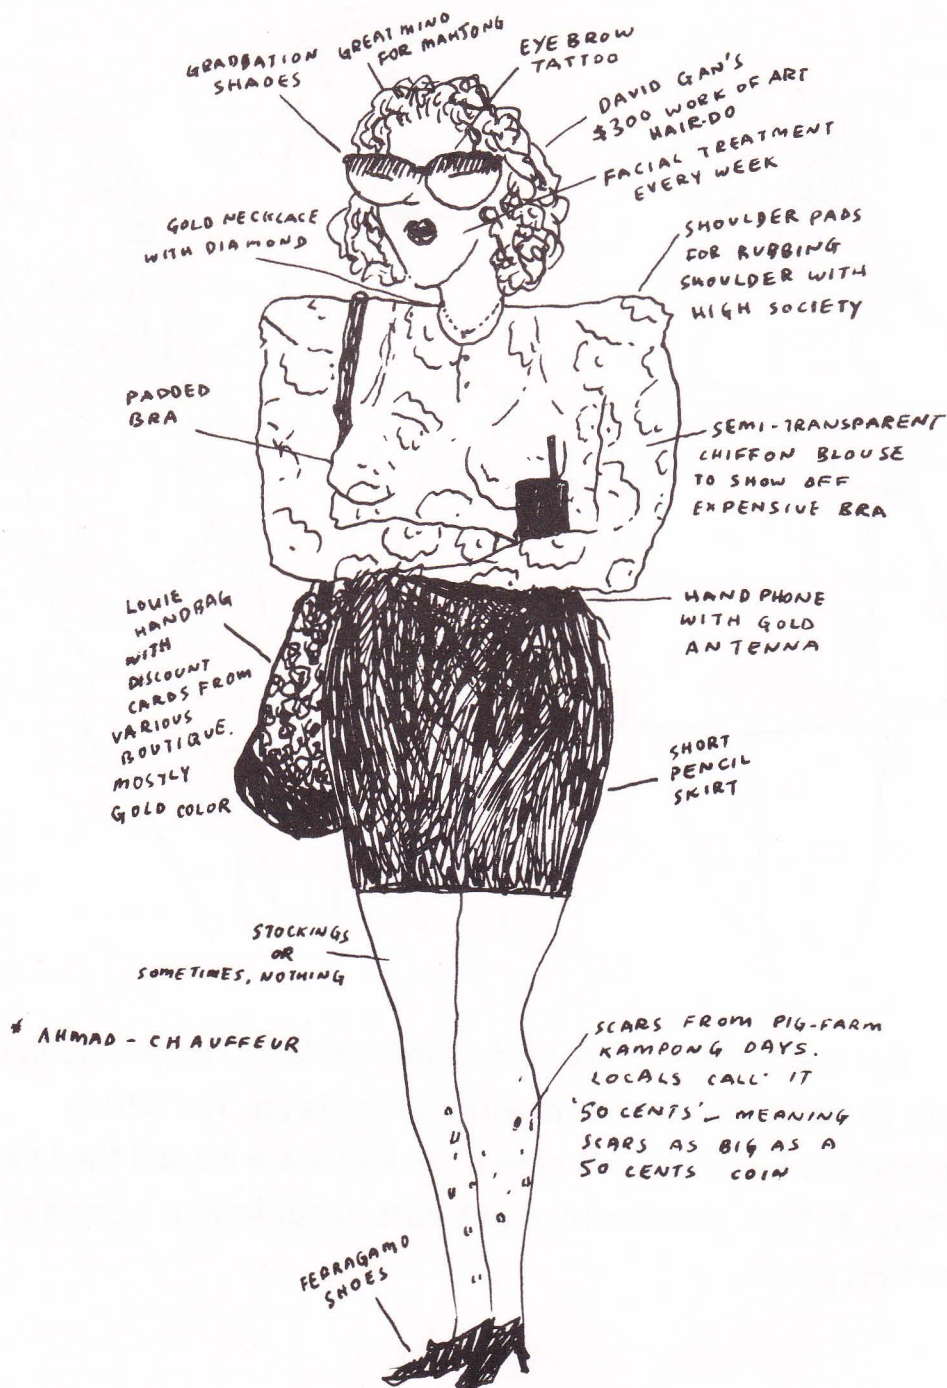 GRADBATION
SHADES
GREAT MIND
FOR MAHJONG
EYE BROW
TATTOO
DAVID GAN'S
$300 WORK OF ART
HAIR-DO
FACIAL TREATMENT
EVERY WEEK
GOLD NECKLACE
WITH DIAMOND
SHOULDER PADS
FOR RUBBING
SHOULDER WITH
HIGH SOCIETY
PADDED
BRA
SEMI-TRANSPARENT
CHIFFON BLOUSE
TO SHOW OFF
EXPENSIVE BRA
LOUIE
HANDBAG
WITH
DISCOUNT
CARDS FROM
VARIOUS
BOUTIQUE.
MOSTLY
GOLD COLOR
HANDPHONE
WITH GOLD
ANTENNA
SHORT
PENCIL
SKIRT
STOCKINGS
OR
SOMETIMES, NOTHING
* AHMAD - CHAUFFEUR
SCARS FROM PIG-FARM
KAMPONG DAYS.
LOCALS CALL IT
'50 CENTS' - MEANING
SCARS AS BIG AS A
50 CENTS COIN
FERRAGAMO
SHOES